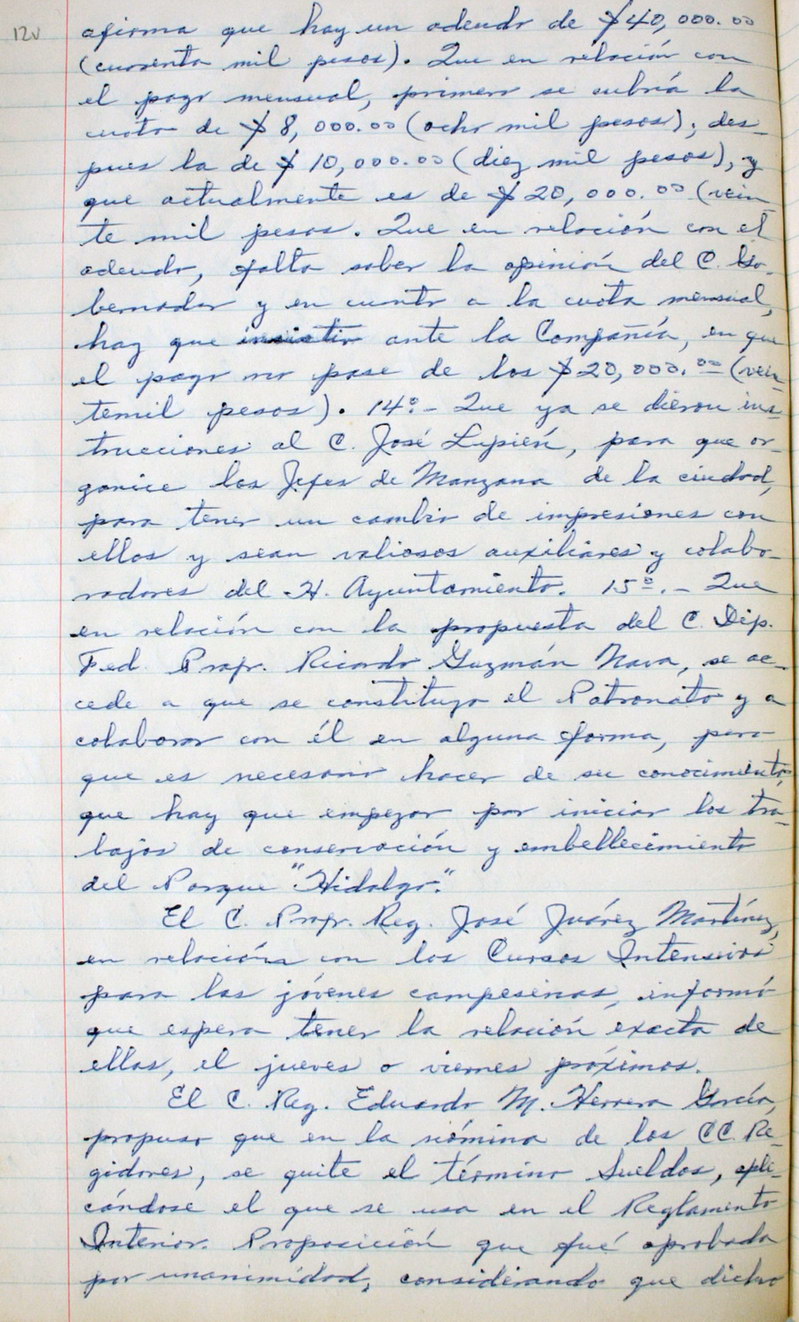 12v
afirma que hay un adeudo de $40,000.00
(cuarenta mil pesos). Que en relación con
el pago mensual, primero se cubría la
cuota de $8,000.00 (ocho mil pesos); des-
pues la de $10,000.00 (diez mil pesos), y
que actualmente es de $20,000.00 (vein-
te mil pesos. Que en relación con el
adeudo, falta saber la opinión del C. Go-
bernador y en cuanto a la cuota mensual,
hay que insistir ante la Compañía, en que
el pago no pase de los $20,000.00 (vein-
temil pesos). 14º- Que ya se dieron ins-
trucciones al C. José, para que or-
ganice los Jefes de Manzana de la ciudad,
para tener un cambio de impresiones con
ellos y sean valiosos auxiliares y colabo-
radores del H. Ayuntamiento. 15º.- Que
en relación con la propuesta del C. Dip.
Fed. Profr. Ricardo Guzmán Nava, se ac-
cede a que se constituya el Patronato y a
colaborar con él en alguna forma, pero
que es necesario hacer de su conocimiento,
que hay que empezar por iniciar los tra-
bajos de conservación y embellecimiento
del Parque "Hidalgo".
El C. Profr. Reg. José Juárez Martínez,
en relación con los Cursos Intensivos
para las jóvenes campesinas, informó
que espera tener la relación exacta de
ellas, el jueves o viernes próximos.
El C. Reg. Eduardo M. Herrera García,
propuso que en la nómina de los CC. Re-
gidores, se quite el término Sueldos, apli-
cándose el que se usa en el Reglamento
Interior. Proposición que fué aprobada
por unanimidad, considerando que dicho